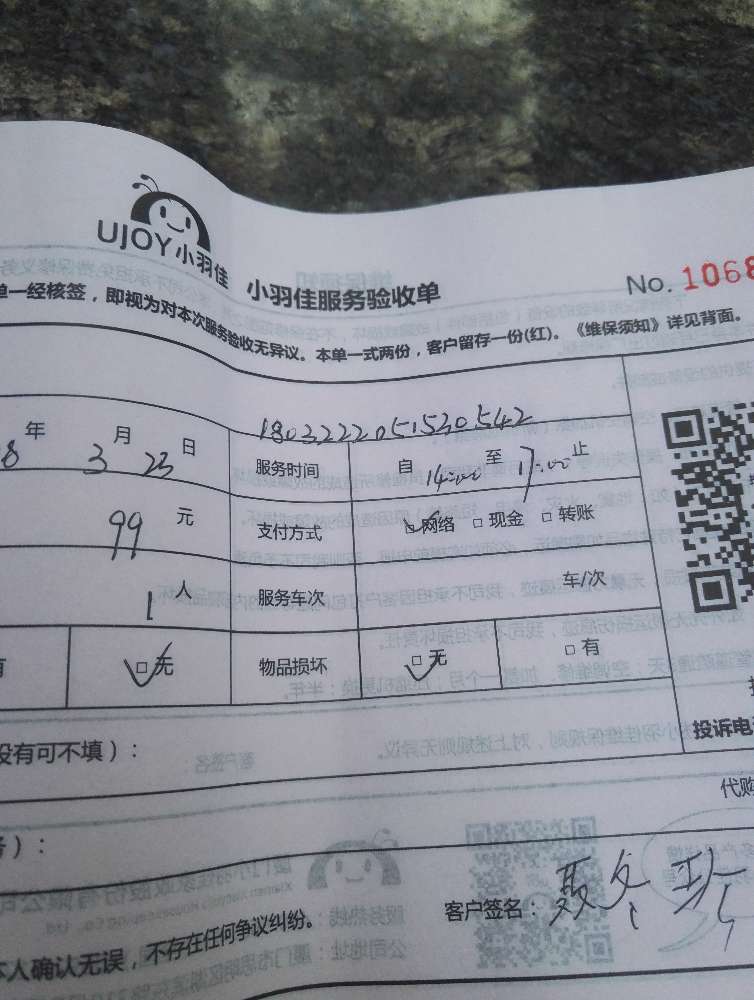 UJOY小羽佳
小羽佳服务验收单
No. 1068
单一经核签，即视为对本次服务验收无异议。本单一式两份，客户留存一份(红)。《维保须知》详见背面。
1803222051530542
8 年 3 月 23 日 服务时间 自 14:00 至 17:00 止
99 元 支付方式 网络 现金 转账
1 人 服务车次 车/次
有 无 物品损坏 无 有
没有可不填）：
投诉电
代购
）：
客户签名：
本人确认无误，不存在任何争议纠纷。